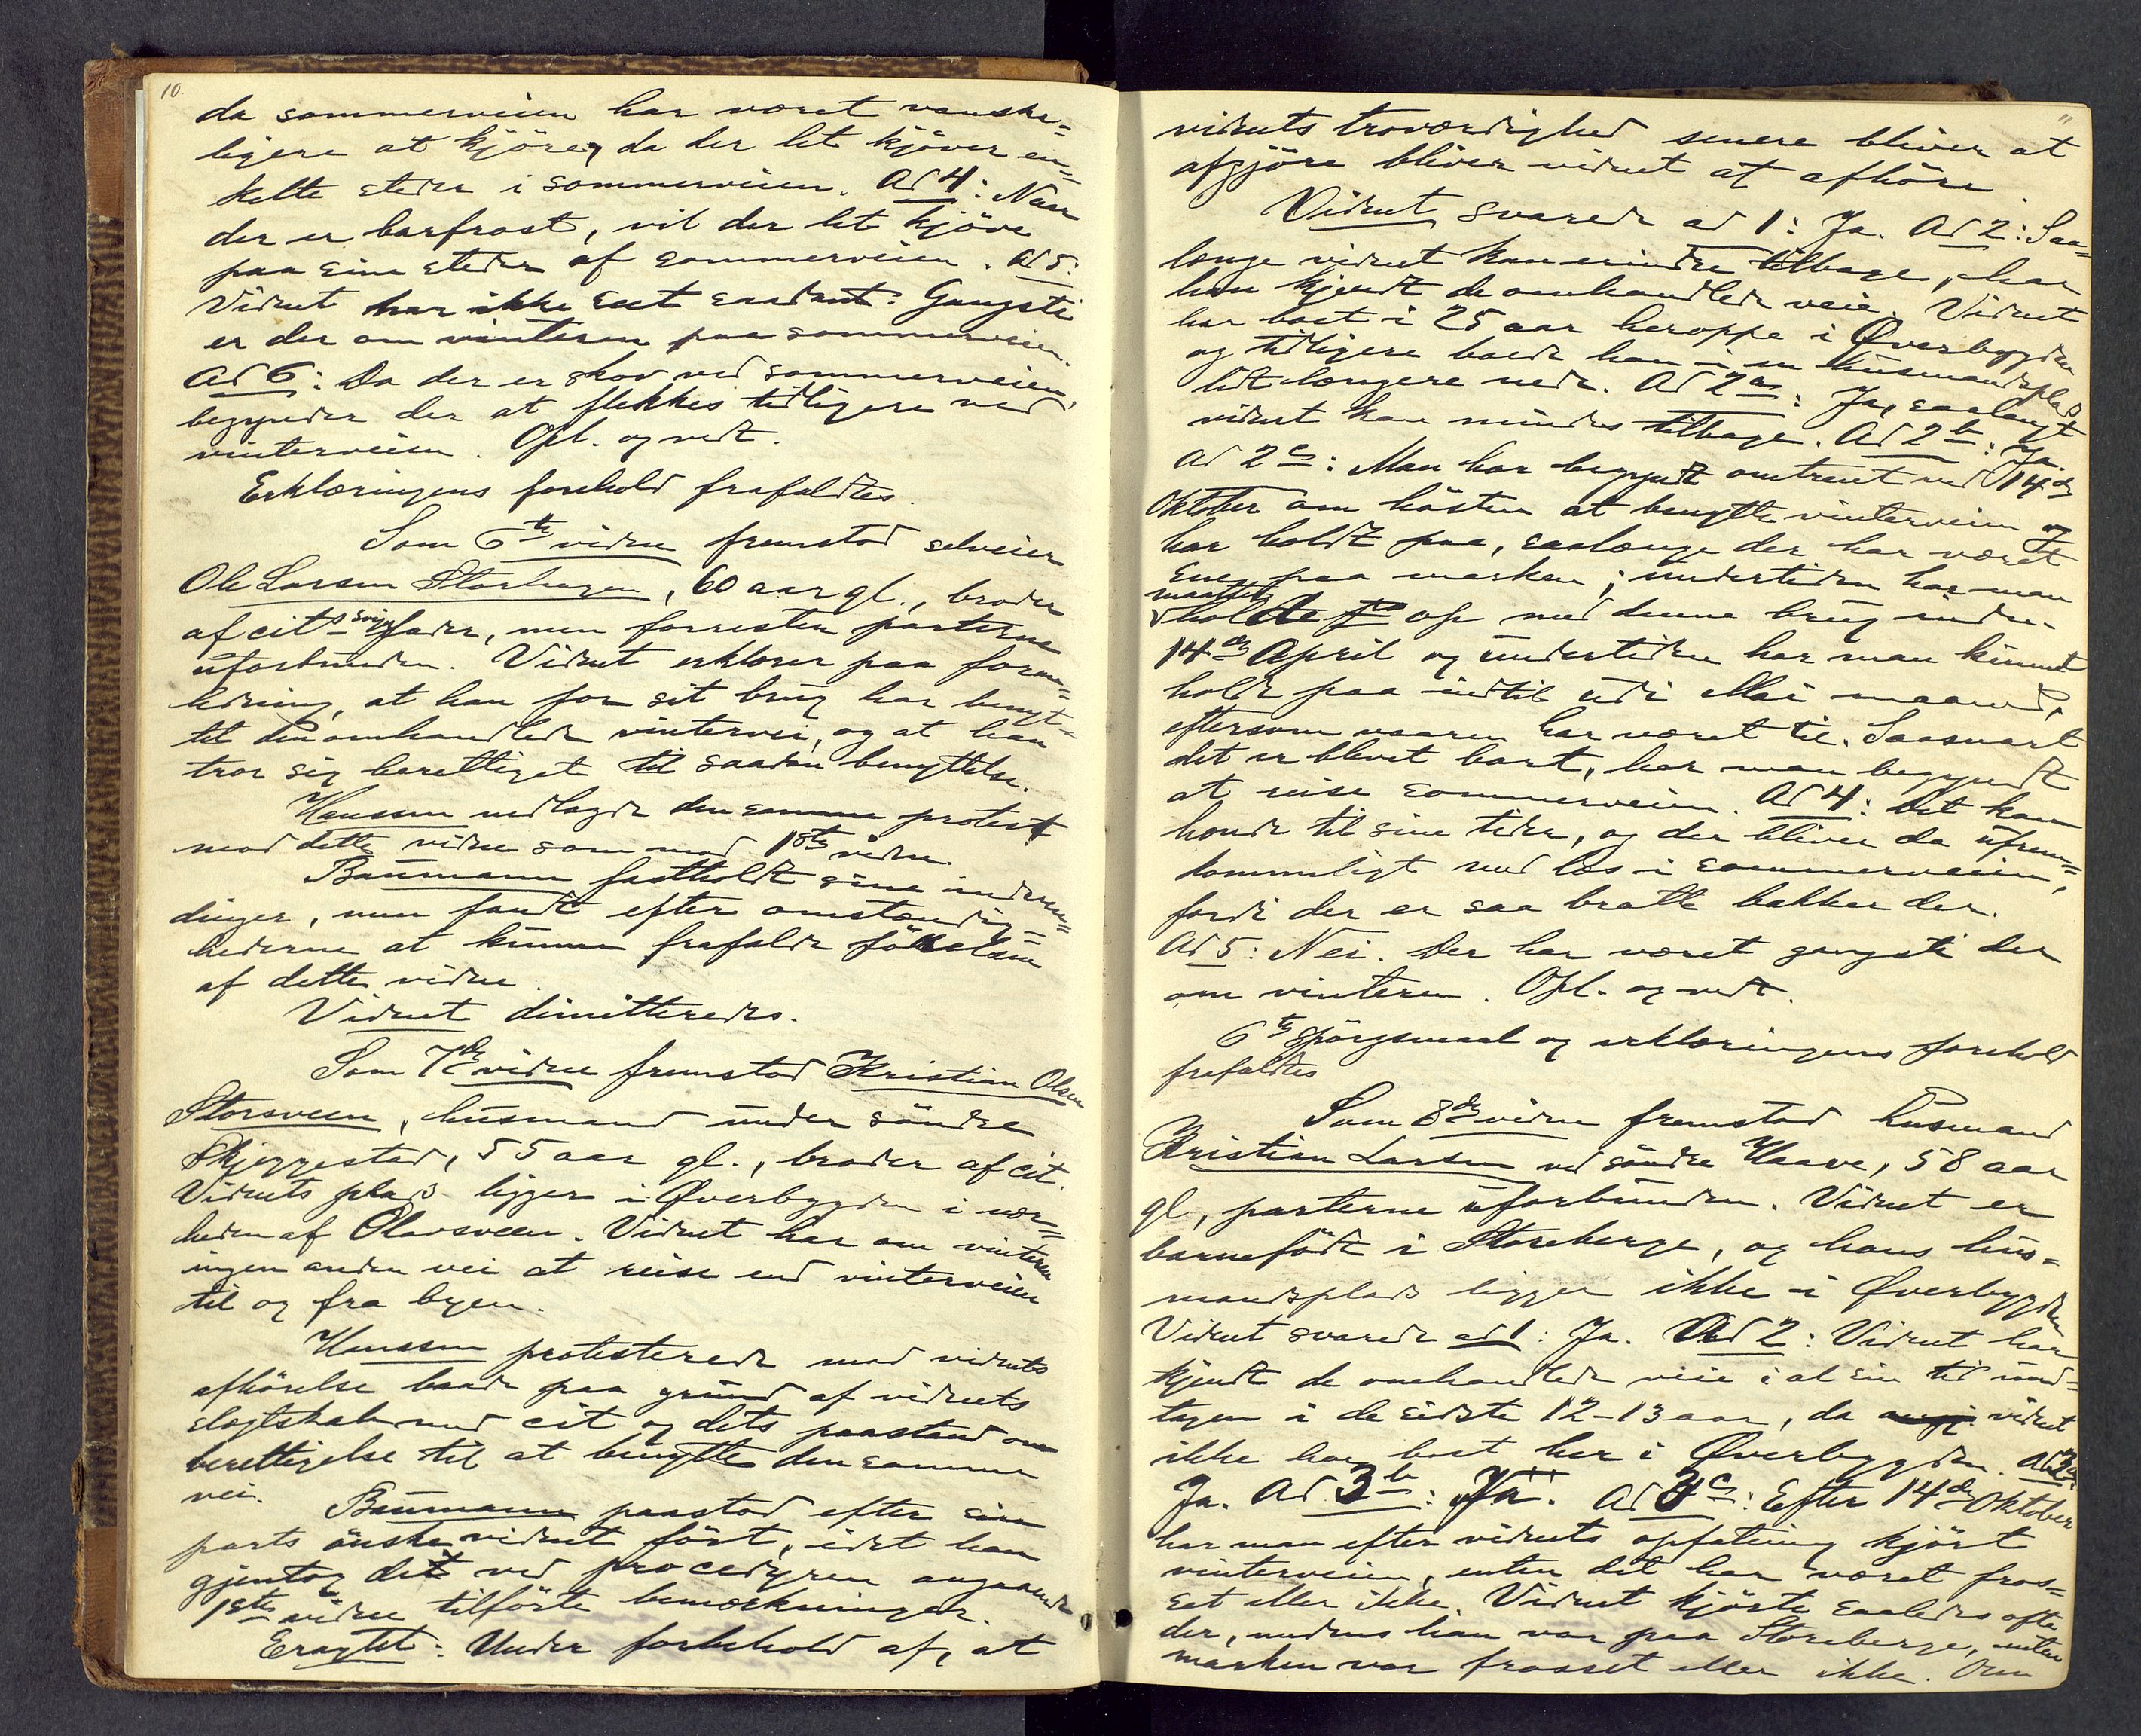 10.
da sommerveien har været vanske-
ligere at kjöre, da der let kjöver en-
kelte steder i sommerveien. Ad 4: Naar
der er barfrost, vil der let kjöve
paa sine steder af sommerveien. Ad 5:
Vidnet har ikke seet saadant. Gangsti
er der om vinteren paa sommerveien.
Ad 6: Da der er skov ved sommerveien,
begynder der at flekkes tidligere ved
vinterveien. Opl. og vedt.
Erklæringens forehold frafaldtes.
Som 6te vidne fremstod selveier
Ole Larsen Storhagen, 60 aar gl., broder
af cit.s svigerfader, men forresten parterne
uforbunden. Vidnet erklærer paa foran-
ledning, at han for sit brug har benyt-
tet den omhandlede vintervei, og at han
tror sig berettiget til saadan benyttelse.
Hanssen nedlagde den samme protest
mod dette vidne som mod 1ste vidne.
Baumann fastholdt sine indven-
dinger, men fandt efter omstændig-
hederne at kunne frafalde förelsen
af dette vidne.
Vidnet dimitteredes.
Som 7de vidne fremstod Kristian Olsen
Storsveen, husmand under söndre
Skjeggestad, 55 aar gl., broder af cit.
Vidnets plads ligger i Øverbygden i nær-
heden af Olavsveen. Vidnet har om vinteren
ingen anden vei at reise end vinterveien
til og fra byen.
Hanssen protesterede mod vidnets
afhörelse baade paa grund af vidnets
slegtskab med cit og dets paastand om
berettigelse til at benytte den samme
vei.
Baumann paastod efter sin
parts önske vidnet fört, idet han
gjentog det ved proceduren angaaende
1ste vidne tilförte bemærkninger.
Eragtet: Under forbehold af, at
11
vidnets troværdighed senere bliver at
afgjöre bliver vidnet at afhöre.
Vidnet svarede ad 1: Ja. Ad 2: Saa-
længe vidnet kan erindre tilbage, har
han kjendt de omhandlede veie. Vidnet
har boet i 25 aar heroppe i Øverbygden
og tidligere boede han i en husmandsplads
lidt længere nede. Ad 2a: Ja, saalangt
vidnet kan mindes tilbage. Ad 2b: Ja.
Ad 2c: Man har begyndt omtrent ved 14de
Oktober om hösten at benytte vinterveien og
har holdt paa, saalænge der har været
sne paa marken; undertiden har man
maattet
holde op med denne brug inden
14de April og undertiden har man kunnet
holde paa indtil ud i Mai maaned,
eftersom vaaren har været til. Saasnart
det er blevet bart, har man begyndt
at reise sommerveien. Ad 4: Det kan
hænde til sine tider, og der bliver da ufrem-
kommeligt med læs i sommerveien,
fordi der er saa bratte bakker der.
Ad 5: Nei. Der har været gangsti der
om vinteren. Opl. og vedt.
6te spörgsmaal og erklæringens forehold
frafaldtes
Som 8de vidne fremstod husmand
Kristian Larsen ved söndre Haave, 58 aar
gl, parterne uforbunden. Vidnet er
barnefödt i Storeberge, og hans hus-
mandsplads ligger ikke i Øverbygden
Vidnet svarede ad 1: Ja. Ad 2: Vidnet har
kjendt de omhandlede veie i al sin tid und-
tagen i de sidste 12-13 aar, da vidnet
ikke har boet her i Øverbygden. Ad 3a:
Ja. Ad 3b: Ja. Ad 3c: Efter 14de Oktober
har man efter vidnets opfatning kjört
vinterveien, enten det har været fros-
set eller ikke. Vidnet kjörte saaledes ofte
der, medens han var paa Storeberge, enten
marken var frosset eller ikke. Om